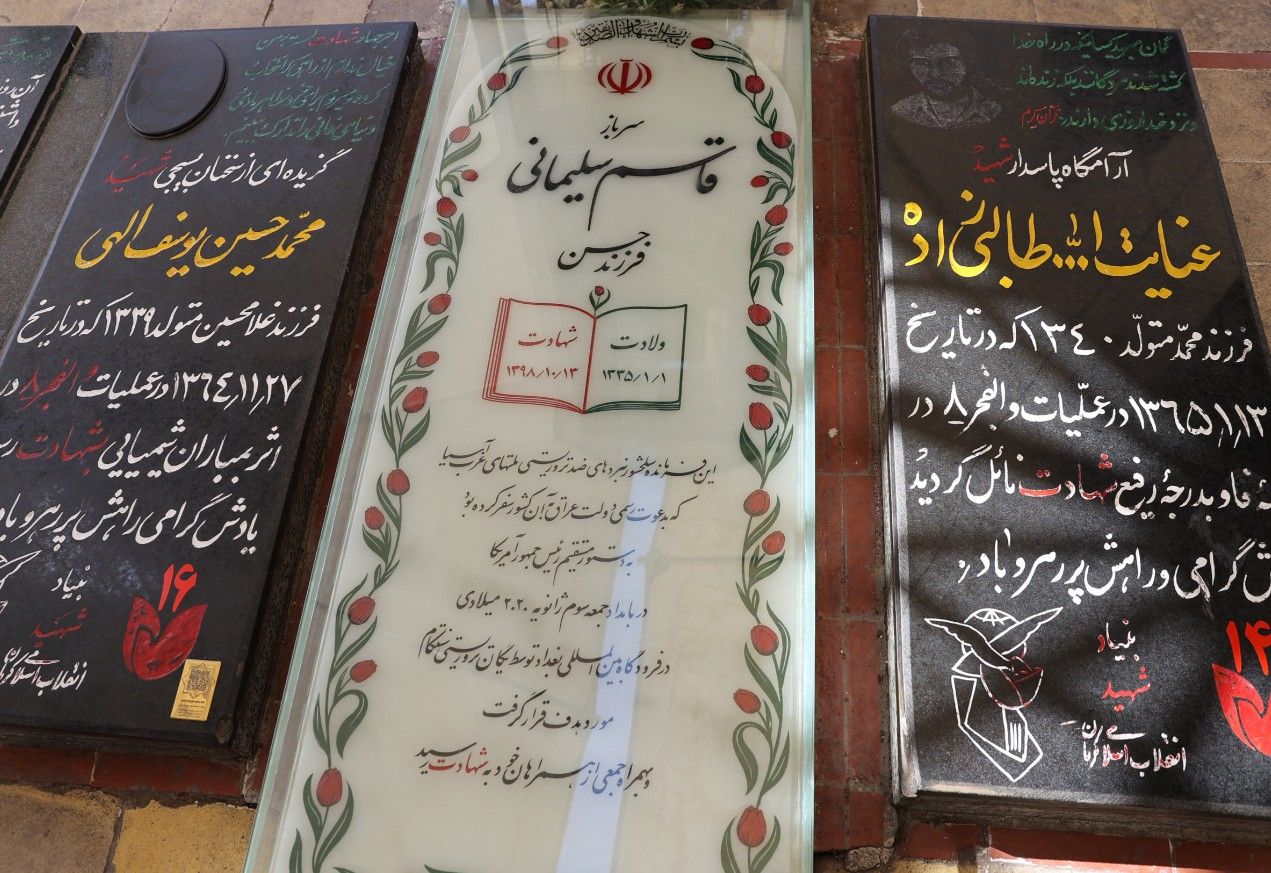 سرباز
قاسم سلیمانی
فرزند حسن
ولادت
۱۳۳۵/۱/۱
شهادت
۱۳۹۸/۱۰/۱۳
این فرمانده سلحشور نبردهای ضد تروریستی ملتهای غرب آسیا
که بدعوت رسمی دولت عراق به آن کشور سفر کرده بود
به دستور مستقیم رئیس جمهور آمریکا
در بامداد جمعه سوم ژانویه ۲۰۲۰ میلادی
در فرودگاه بین المللی بغداد توسط یگان تروریستی سنتکام
مورد هدف قرار گرفت
و بهمراه جمعی از همراهان خود به شهادت رسید
گمان مبرید کسانیکه در راه خدا
کشته شدند مردگانند بلکه زنده‌اند
و نزد خدا روزی دارند. قرآن کریم
آرامگاه پاسدار شهید
عنایت الله طالبی زاده
فرزند محمد متولد ۱۳۴۰ که در تاریخ
۱۳۶۵٫۱٫۱۳ در عملیات والفجر ۸ در
فاو بدرجهٔ رفیع شهادت نائل گردید
گرامی و راهش پر رهرو باد
بنیاد
شهید
انقلاب اسلامی کرمان
۱۴
گزیده ای از استخوان بسیجی شهید
محمد حسین یوسف الهی
فرزند غلامحسین متولد ۱۳۳۹ که در تاریخ
۱۳۶۴٫۱۱٫۲۷ در عملیات والفجر ۸ در
اثر بمباران شیمیایی بشهادت
یادش گرامی راهش پر رهرو باد
۱۶
بنیاد
شهید
انقلاب اسلامی